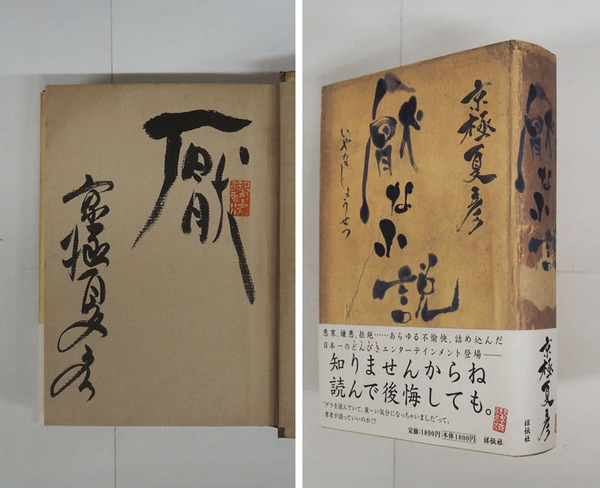 厭
京極夏彦
京極夏彦
厭な小説
いやなしょうせつ
悪寒、嫌悪、拒絶……あらゆる不愉快、詰め込んだ
日本一のどんびきエンターテインメント登場――
知りませんからね
読んで後悔しても。
"ゲラを読んでいて、重〜い気分になっちゃいました"って、
業者が語っていいのかり?
定価:1890円 本体1800円
祥伝社
厭な小説
京極夏彦
祥伝社